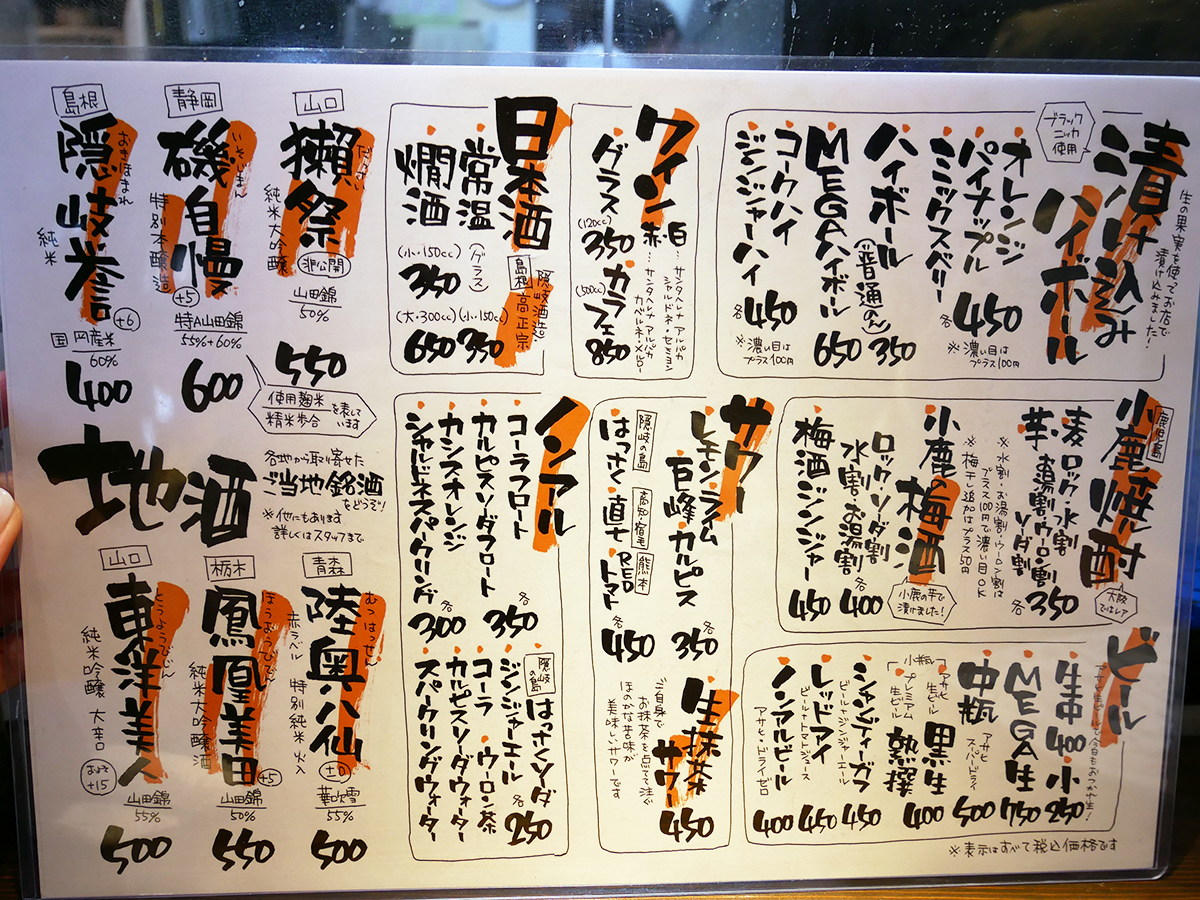 漬け込み
ハイボール
生の果実を使ってお店で
漬け込みました!
ブラック
ニッカ
使用
・オレンジ
・パイナップル
・ミックスベリー
各450
※濃い目は
プラス100円
・ハイボール(普通のん)
350
・MEGAハイボール
650
・コークハイ
・ジンジャーハイ
各450
※濃い目は
プラス100円
ワイン
白…サンタヘレナ アルパカ
シャルドネ・セミヨン
赤…サンタヘレナ アルパカ
カベルネ・メルロー
・グラス
(120cc)
350
・カラフェ
(500cc)
850
日本酒
隠岐酒造
島根
高正宗
・常温
(グラス)
(小・150cc)
350
・燗酒
(小・150cc)
350
(大・300cc)
650
山口
獺祭
だっさい
純米大吟醸
非公開
山田錦
50%
550
静岡
磯自慢
いそじまん
特別本醸造
+5
特A山田錦
55%+60%
600
島根
隠岐誉
おきほまれ
純米
+6
国産米
60%
400
使用麹米
精米歩合
を表して
います
地酒
各地から取り寄せた
ご当地銘酒
をどうぞ!
※他にもあります
詳しくはスタッフまで
青森
陸奥八仙
むつはっせん
赤ラベル 特別純米 火入
±0
華吹雪
55%
500
栃木
鳳凰美田
ほうおうびでん
純米大吟醸酒
+5
山田錦
50%
550
山口
東洋美人
とうようびじん
純米吟醸 大辛口
およそ
+15
山田錦
55%
500
鹿児島
小鹿焼酎
大阪
ではレア
・麦 ロック・水割
・芋 お湯割・ウーロン割
ソーダ割
各350
※水割・お湯割・ウーロン割は
プラス100円で濃い目OK
※梅干し追加はプラス50円
小鹿の梅酒
小鹿の芋で
漬けました!
・ロック・ソーダ割
水割・お湯割
各400
・梅酒ジンジャー
450
サワー
・レモン・ライム
・巨峰・カルピス
各350
隠岐の島
・はっさく
高知・宿毛
・直七
熊本
・REDトマト
各450
・生抹茶サワー
450
ご自身で
お抹茶を点てて注ぐ
ほのかな苦味が
美味しいサワーです
ノンアール
・コーラフロート
・カルピスソーダフロート
各350
・カシスオレンジ
・シャルドネスパークリング
各300
隠岐の島
・はっさくソーダ
・ジンジャーエール
・コーラ ・ウーロン茶
・カルピスソーダウォーター
・スパークリングウォーター
各250
ビール
・生中 400 ・小 250
・MEGA生
750
・中瓶
アサヒ
スーパードライ
500
小瓶
アサヒ
生ビール
黒生
400
プレミアム
生ビール
熟撰
・シャンディーガフ
ビール+ジンジャーエール
450
・レッドアイ
ビール+トマトジュース
450
・ノンアルビール
アサヒ・ドライゼロ
400
※表示はすべて税込価格です